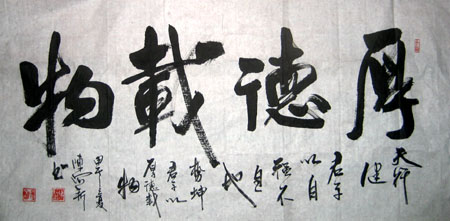 厚德載物
天行
健
君子
以自
强不
息
地
势坤
君子以
厚德載
物
甲午夏
书